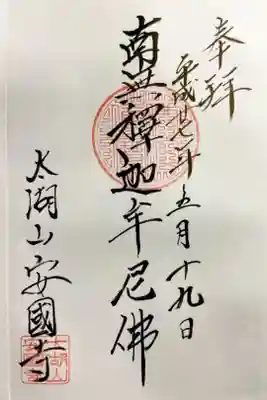 奉拜
平成廿七年五月十九日
南無釋迦牟尼佛
太湖山安國寺